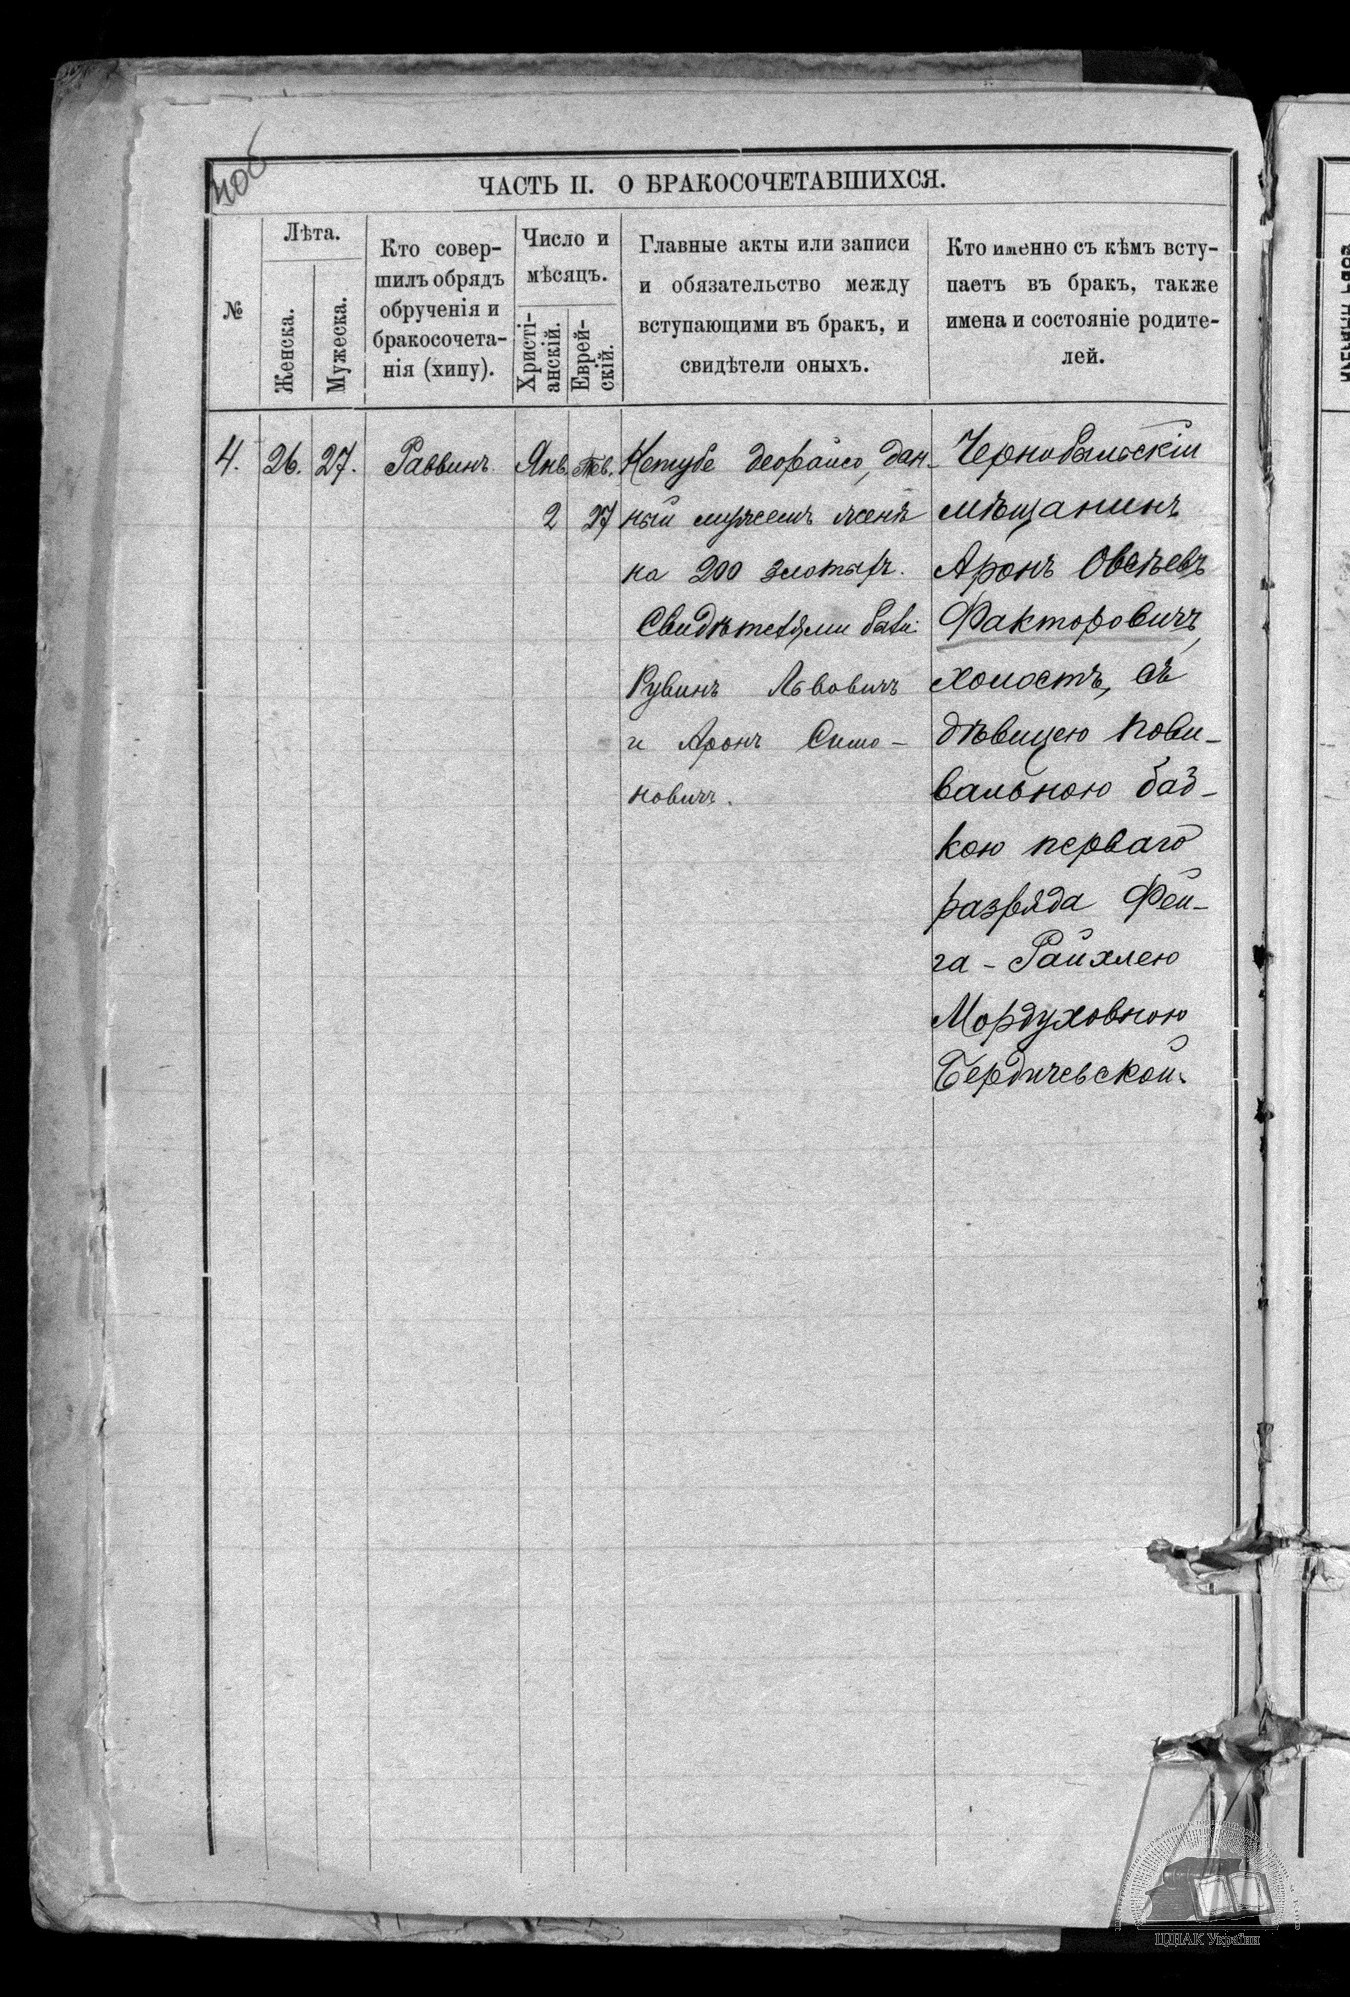 ЧАСТЬ II. О БРАКОСОЧЕТАВШИХСЯ.
№
Лѣта.
Женска.
Мужеска.
Кто совер-
шилъ обрядъ
обрученія и
бракосочета-
нія (хипу).
Число и
мѣсяцъ.
Христі-
анскій.
Еврей-
скій.
Главные акты или записи
и обязательство между
вступающими въ бракъ, и
свидѣтели оныхъ.
Кто именно съ кѣмъ всту-
паетъ въ бракъ, также
имена и состояніе родите-
лей.
4.
26.
27.
Раввинъ.
Янв.
2
Тев.
27
Кетубе деорайсо, дан-
ный мужемъ женѣ
на 200 злотыхъ.
Свидѣтелями были:
Рувинъ Львовичъ
и Аронъ Симо-
новичъ.
Чернобыльскій
мѣщанинъ
Аронъ Овсѣевъ
Факторовичъ,
холостъ, съ
дѣвицею пови-
вальною баб-
кою перваго
разряда Фей-
га-Райхлею
Мордуховною
Бердичевской.
ЦДІАК України